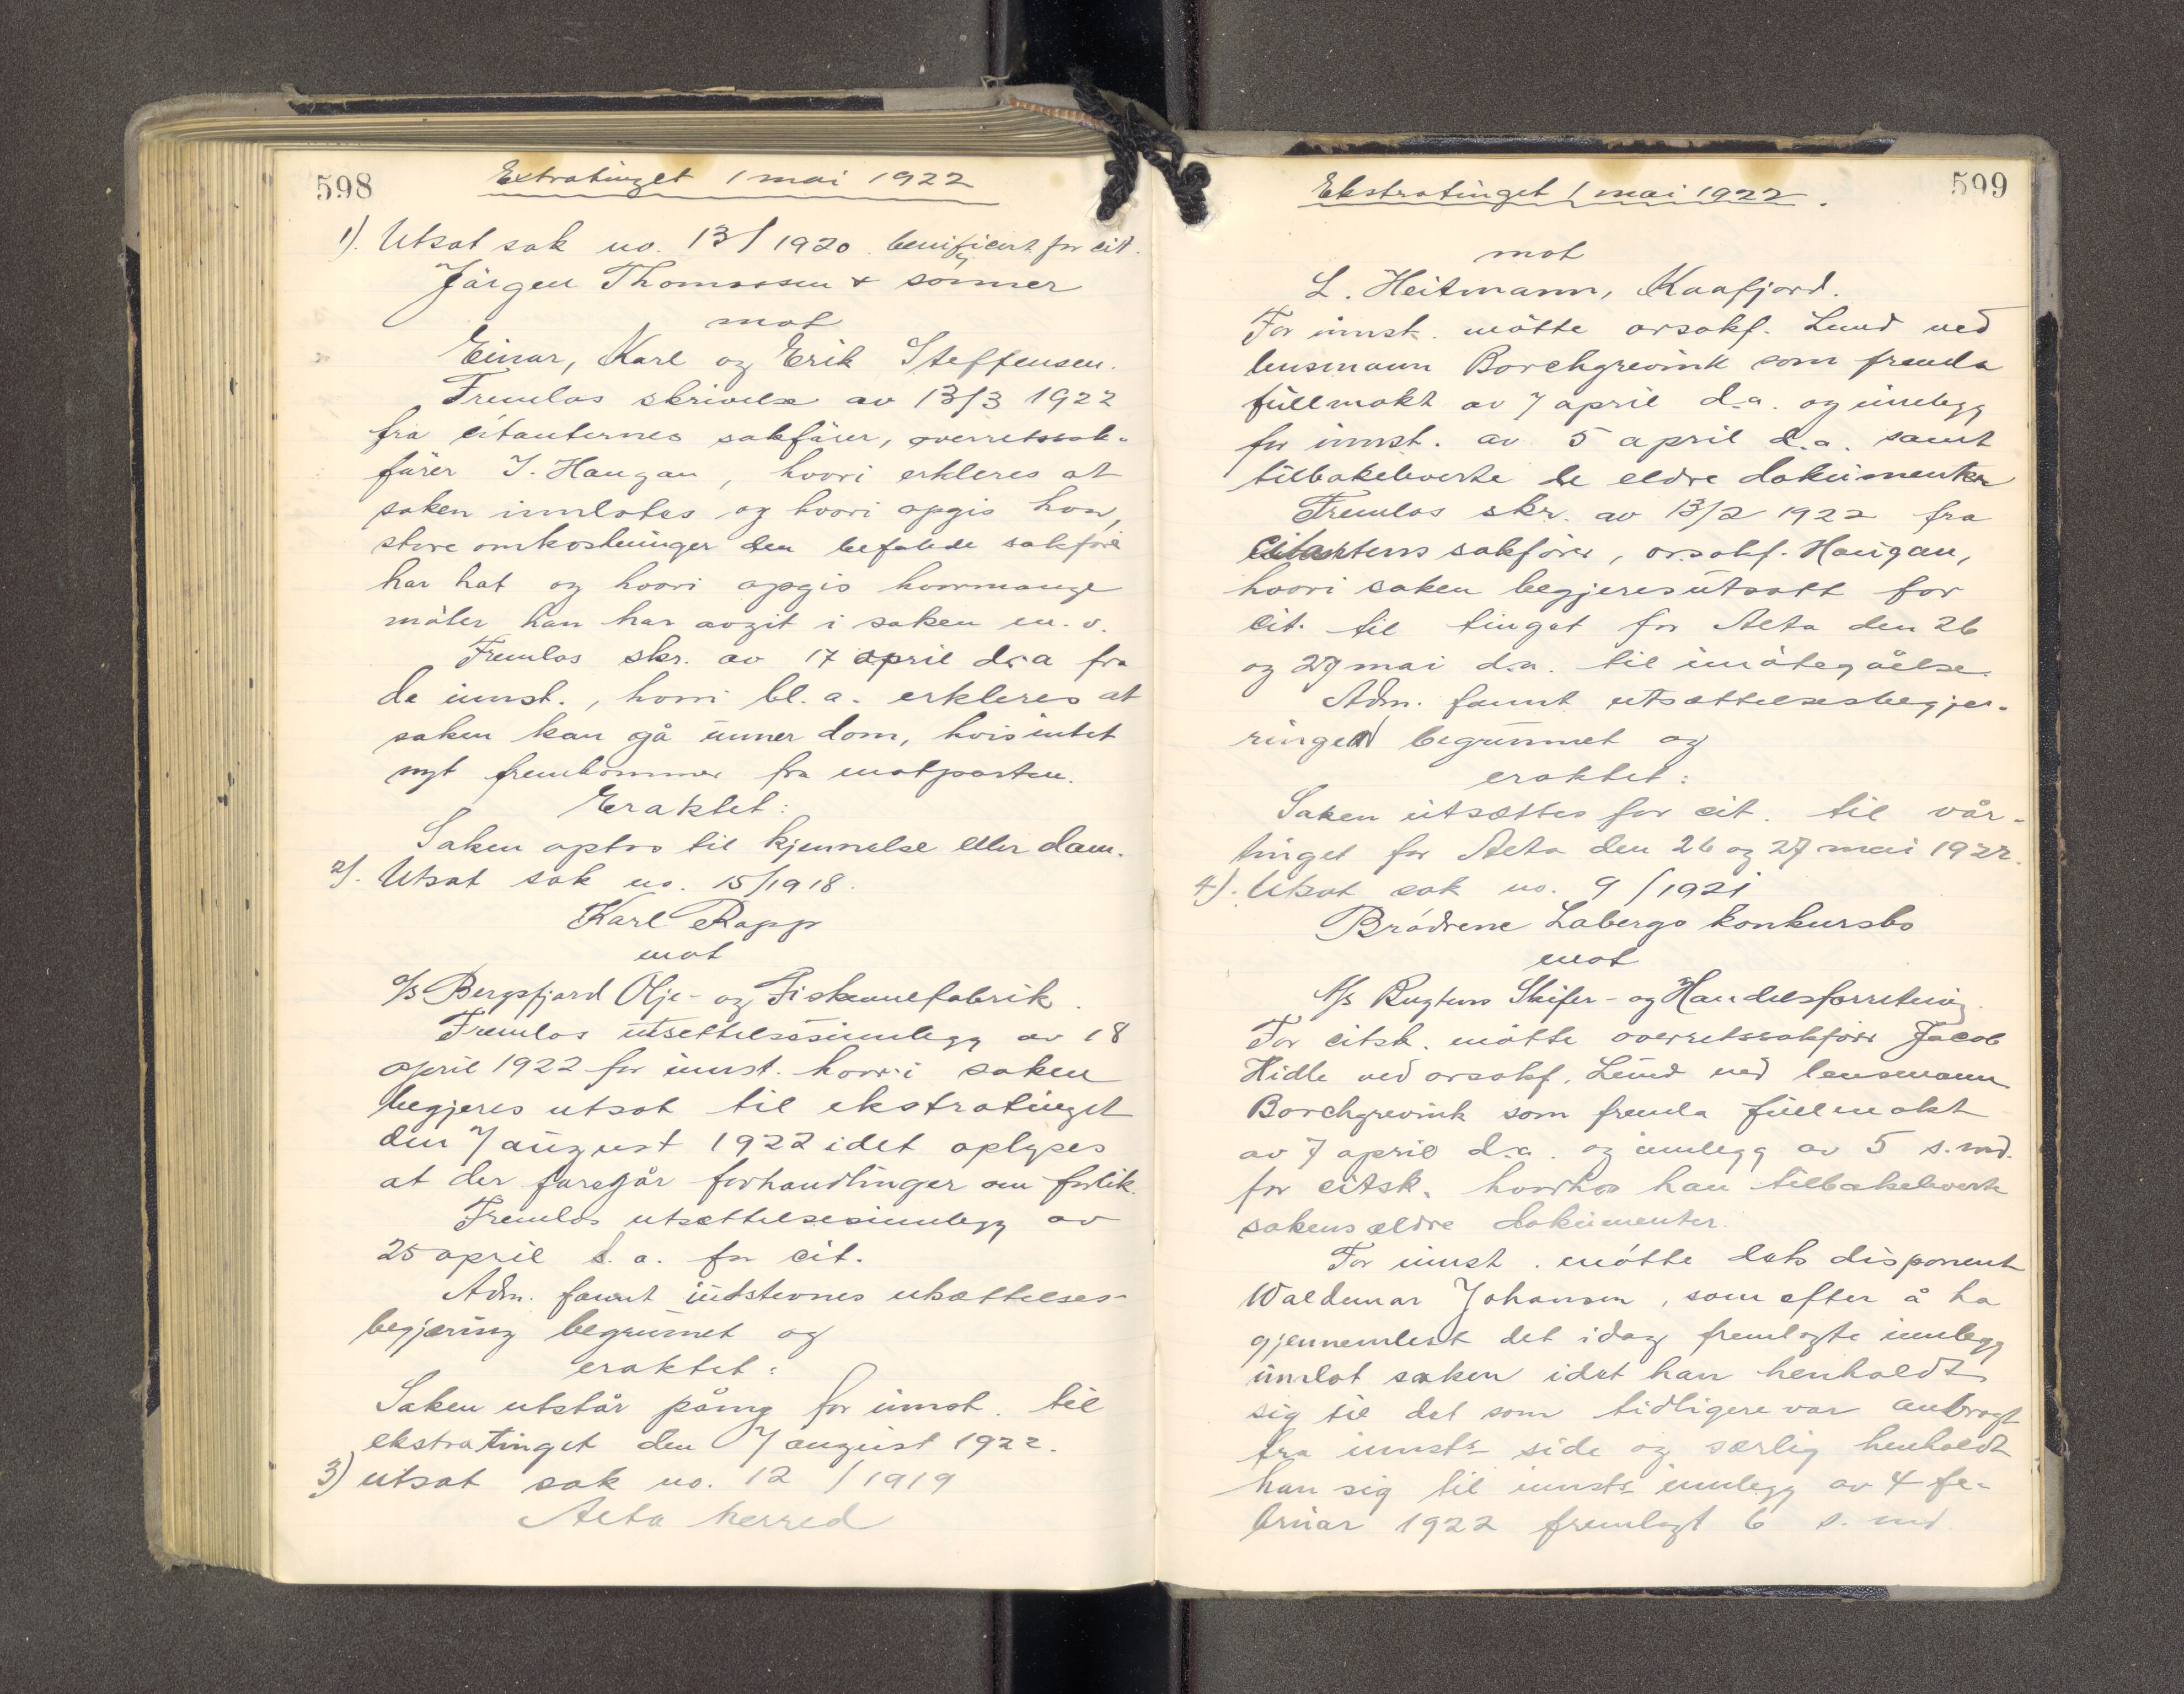 598
Extratinget 1 mai 1922
1). Utsat sak no. 13/1920 benificert for cit.
Jörgen Thomassen & sönner
mot
Einar, Karl og Erik Steffensen.
Fremlas skrivelse av 13/3 1922
fra citanternes sakförer, overretssak-
förer J. Haugan, hvori erkleres at
saken innlates og hvori opgis hvor
store omkostninger den befalede sakförer
har hat og hvori opgis hvormange
möter han har avgit i saken m. v.
Fremlas skr. av 17 april d.a fra
de innst., hvori bl. a. erkleres at
saken kan gå unner dom, hvis intet
nyt fremkommer fra motparten.
Eraktet:
Saken optas til kjennelse eller dom.
2). Utsat sak no. 15/1918.
Karl Rapp
mot
A/S Bergsfjord Olje- og Fiskemelfabrik.
Fremlas utsettelsesinnlegg av 18
april 1922 for innst. hvori saken
begjeres utsat til ekstratinget
den 7 august 1922 idet oplyses
at der foregår forhandlinger om forlik.
Fremlas utsættelsesinnlegg av
25 april d. a. for cit.
Adm. fannt instevnes utsættelses-
begjæring begrunnet og
eraktet:
Saken utstår påny for innst. til
ekstratinget den 7 august 1922.
3) utsat sak no. 12/1919
Alta herred
599
Ekstratinget 1 mai 1922.
mot
L. Heitmann, Kaafjord.
For innst. mötte orsakf. Lund ved
lensmann Borchgrevink som fremla
fullmakt av 7 april d.a. og innlegg
for innst. av 5 april d.a. samt
tilbakeleverte de eldre dokumenter
Fremlas skr. av 13/2 1922 fra
Citantens sakförer, orsakf. Haugan,
hvori saken begjeres utsatt for
cit. til tinget for Alta den 26
og 27 mai d.a. til imötegåelse.
Adm. fannt utsættelsesbegjæ-
ringen begrunnet og
eraktet:
Saken utsættes for cit. til vår-
tinget for Alta den 26 og 27 mai 1922.
4). Utsat sak no. 9/1921
Brödrene Labergs konkursbo
mot
A/S Rugtvns Skifer- og Handelsforretning.
For citsk. mötte overretssakförer Jacob
Hidle ved orsakf. Lund ved lensmann
Borchgrevink som fremla fullmakt
av 7 april d.a. og innlegg av 5 s. md.
for citsk. hvorhos han tilbakeleverte
sakens ældre dokumenter.
For innst. mötte dets disponent
Waldemar Johansen, som efter å ha
gjennemlest det idag fremlagte innlegg
innlot saken idet han henholdt
sig til det som tidligere var anbragt
fra innsts side og særlig henholdt
han sig til innsts innlegg av 4 fe-
bruar 1922 fremlagt 6 s. md.